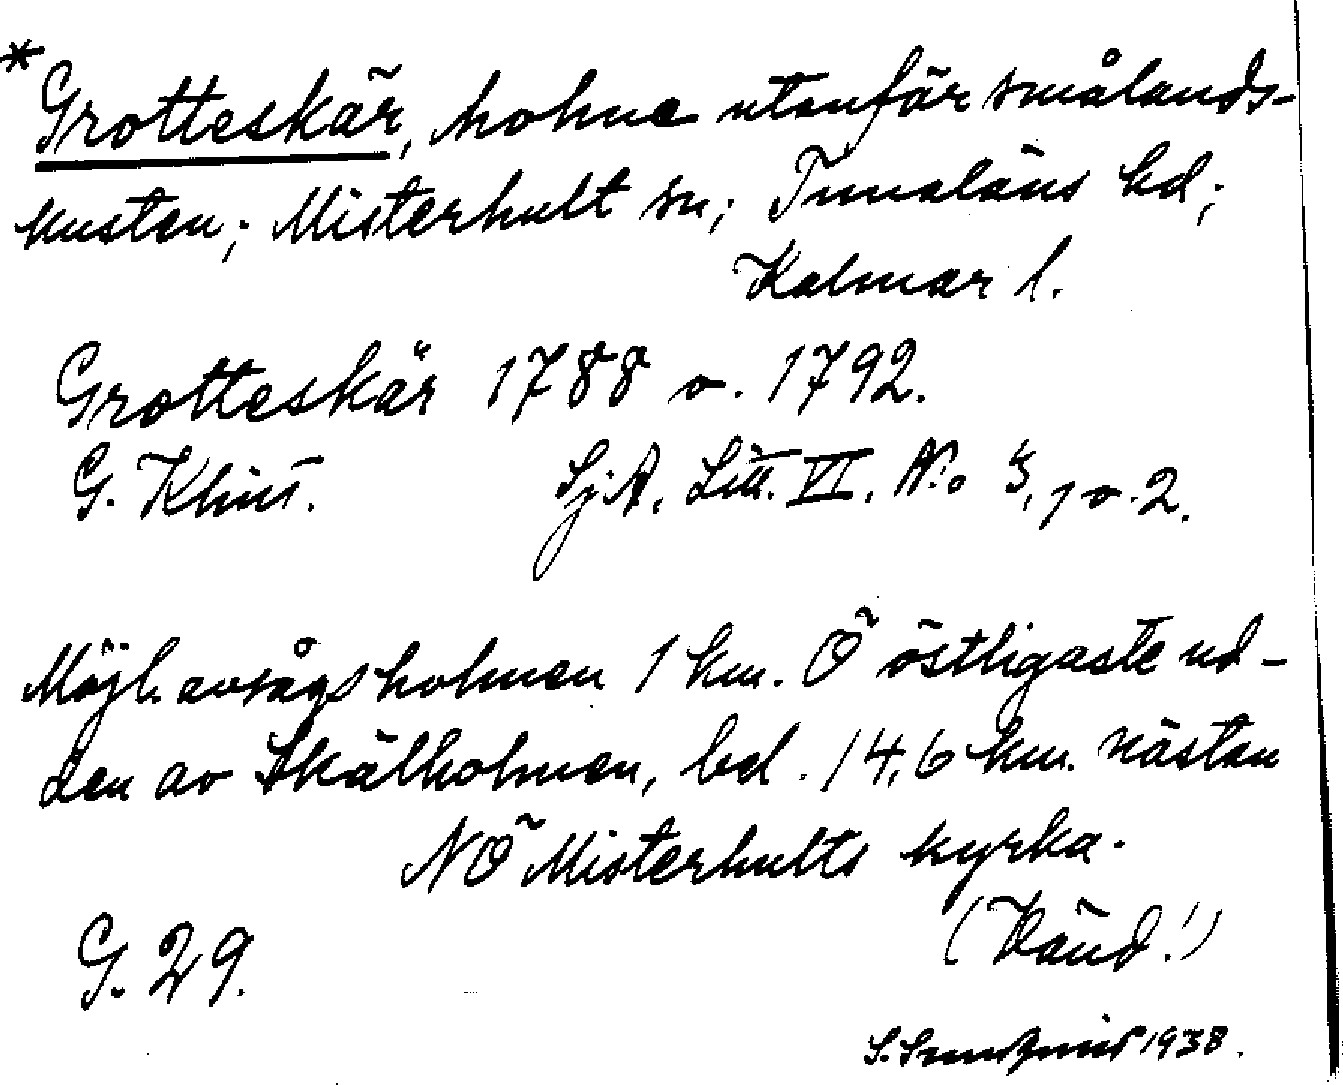 * Grotteskär, holme utanför smålands-
kusten; Misterhult sn; Tunaläns hd;
Kalmar l.
Grotteskär 1788 o. 1792.
G. Klint. Sj.A. Litt. VI. No 3, 1 o. 2.
Möjl. avsågs holmen 1 km. Ö östligaste ud-
den av Skälholmen, bel. 14,6 km. nästan
NÖ Misterhults kyrka.
(Känd!)
G. 29.
1938.